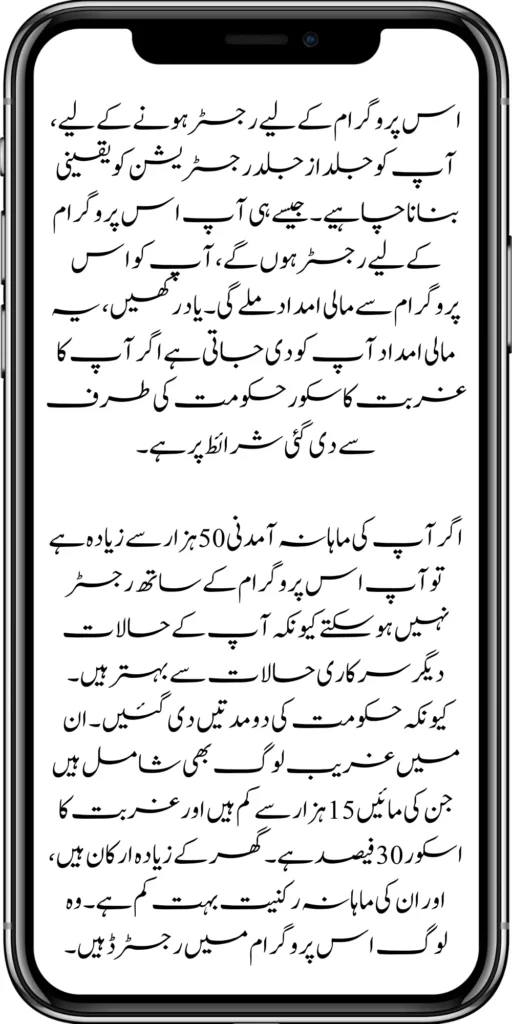 اس پروگرام کے لیے رجسٹر ہونے کے لیے،
آپ کو جلد از جلد رجسٹریشن کو یقینی
بنانا چاہیے۔ جیسے ہی آپ اس پروگرام
کے لیے رجسٹر ہوں گے، آپ کو اس
پروگرام سے مالی امداد ملے گی۔ یاد رکھیں، یہ
مالی امداد آپ کو دی جاتی ہے اگر آپ کا
غربت کا سکور حکومت کی طرف
سے دی گئی شرائط پر ہے۔
اگر آپ کی ماہانہ آمدنی 50 ہزار سے زیادہ ہے
تو آپ اس پروگرام کے ساتھ رجسٹر
نہیں ہو سکتے کیونکہ آپ کے حالات
دیگر سرکاری حالات سے بہتر ہیں۔
کیونکہ حکومت کی دو مدتیں دی گئیں۔ ان
میں غریب لوگ بھی شامل ہیں
جن کی مائیں 15 ہزار سے کم ہیں اور غربت کا
اسکور 30 فیصد ہے۔ گھر کے زیادہ ارکان ہیں،
اور ان کی ماہانہ رکنیت بہت کم ہے۔ وہ
لوگ اس پروگرام میں رجسٹرڈ ہیں۔